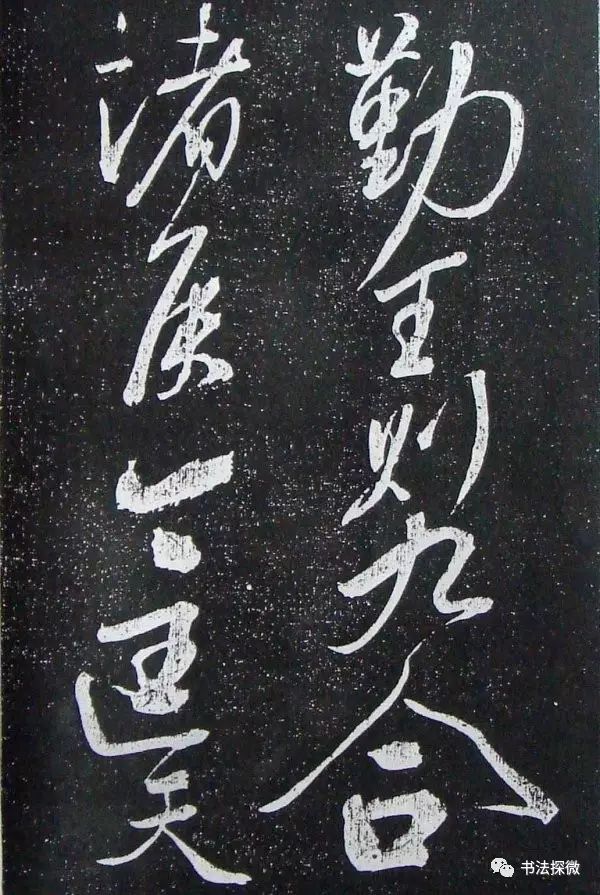 勤王則九合
諸侯一匡天
书法探微